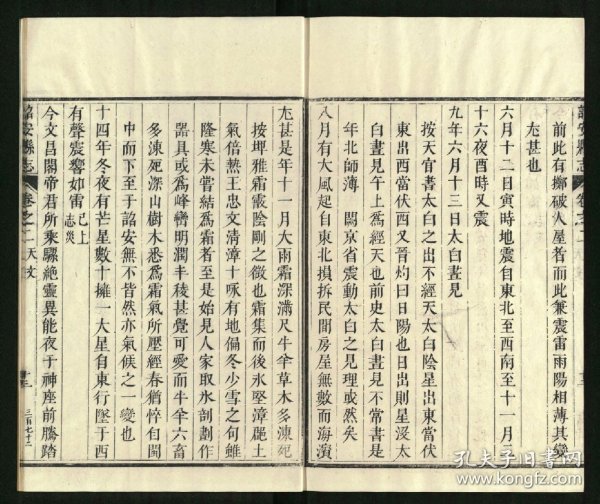 詔安縣志
卷之二
前此有擲破人屋者而此兼震雷雨陽相薄其變
尤甚也
六月十二日寅時地震自東北至西南至十一月二
十六夜酉時又震
九年六月十三日太白晝見
按天官書太白之出不經天太白陰星出東當伏
東出西當伏西又晉灼曰日陽也日出則星沒太
白晝見午上為經天也前史太白晝見不常書是
年北師薄 闕京省震動太白之見理或然矣
八月有大風起自東北損拆民間房屋無數而海濱
尤甚是年十一月大雨霜深滿尺牛羊草木多凍死
按埤雅霜露陰剛之徵也霜集而後氷堅漳麗土
氣倍熱王忠文清漳十咏有地偏冬少雪之句雖
隆寒未嘗結為霜者至是始見人家取氷剖劃作
器具或為峰巒明潤丰稜甚覺可愛而牛羊六畜
多凍死深山樹木悉為霜氣所壓經春猶悴自閩
中而下至于詔安無不皆然亦氣候之一變也
十四年冬夜有芒星數十擁一大星自東行墜于西
有聲震響如雷 已上志災
今文昌閣帝君所乘騾絶靈異能夜于神座前騰踏
詔安縣志
卷之二
天文
三百七十二
孔夫子旧书网
www.kongfz.com